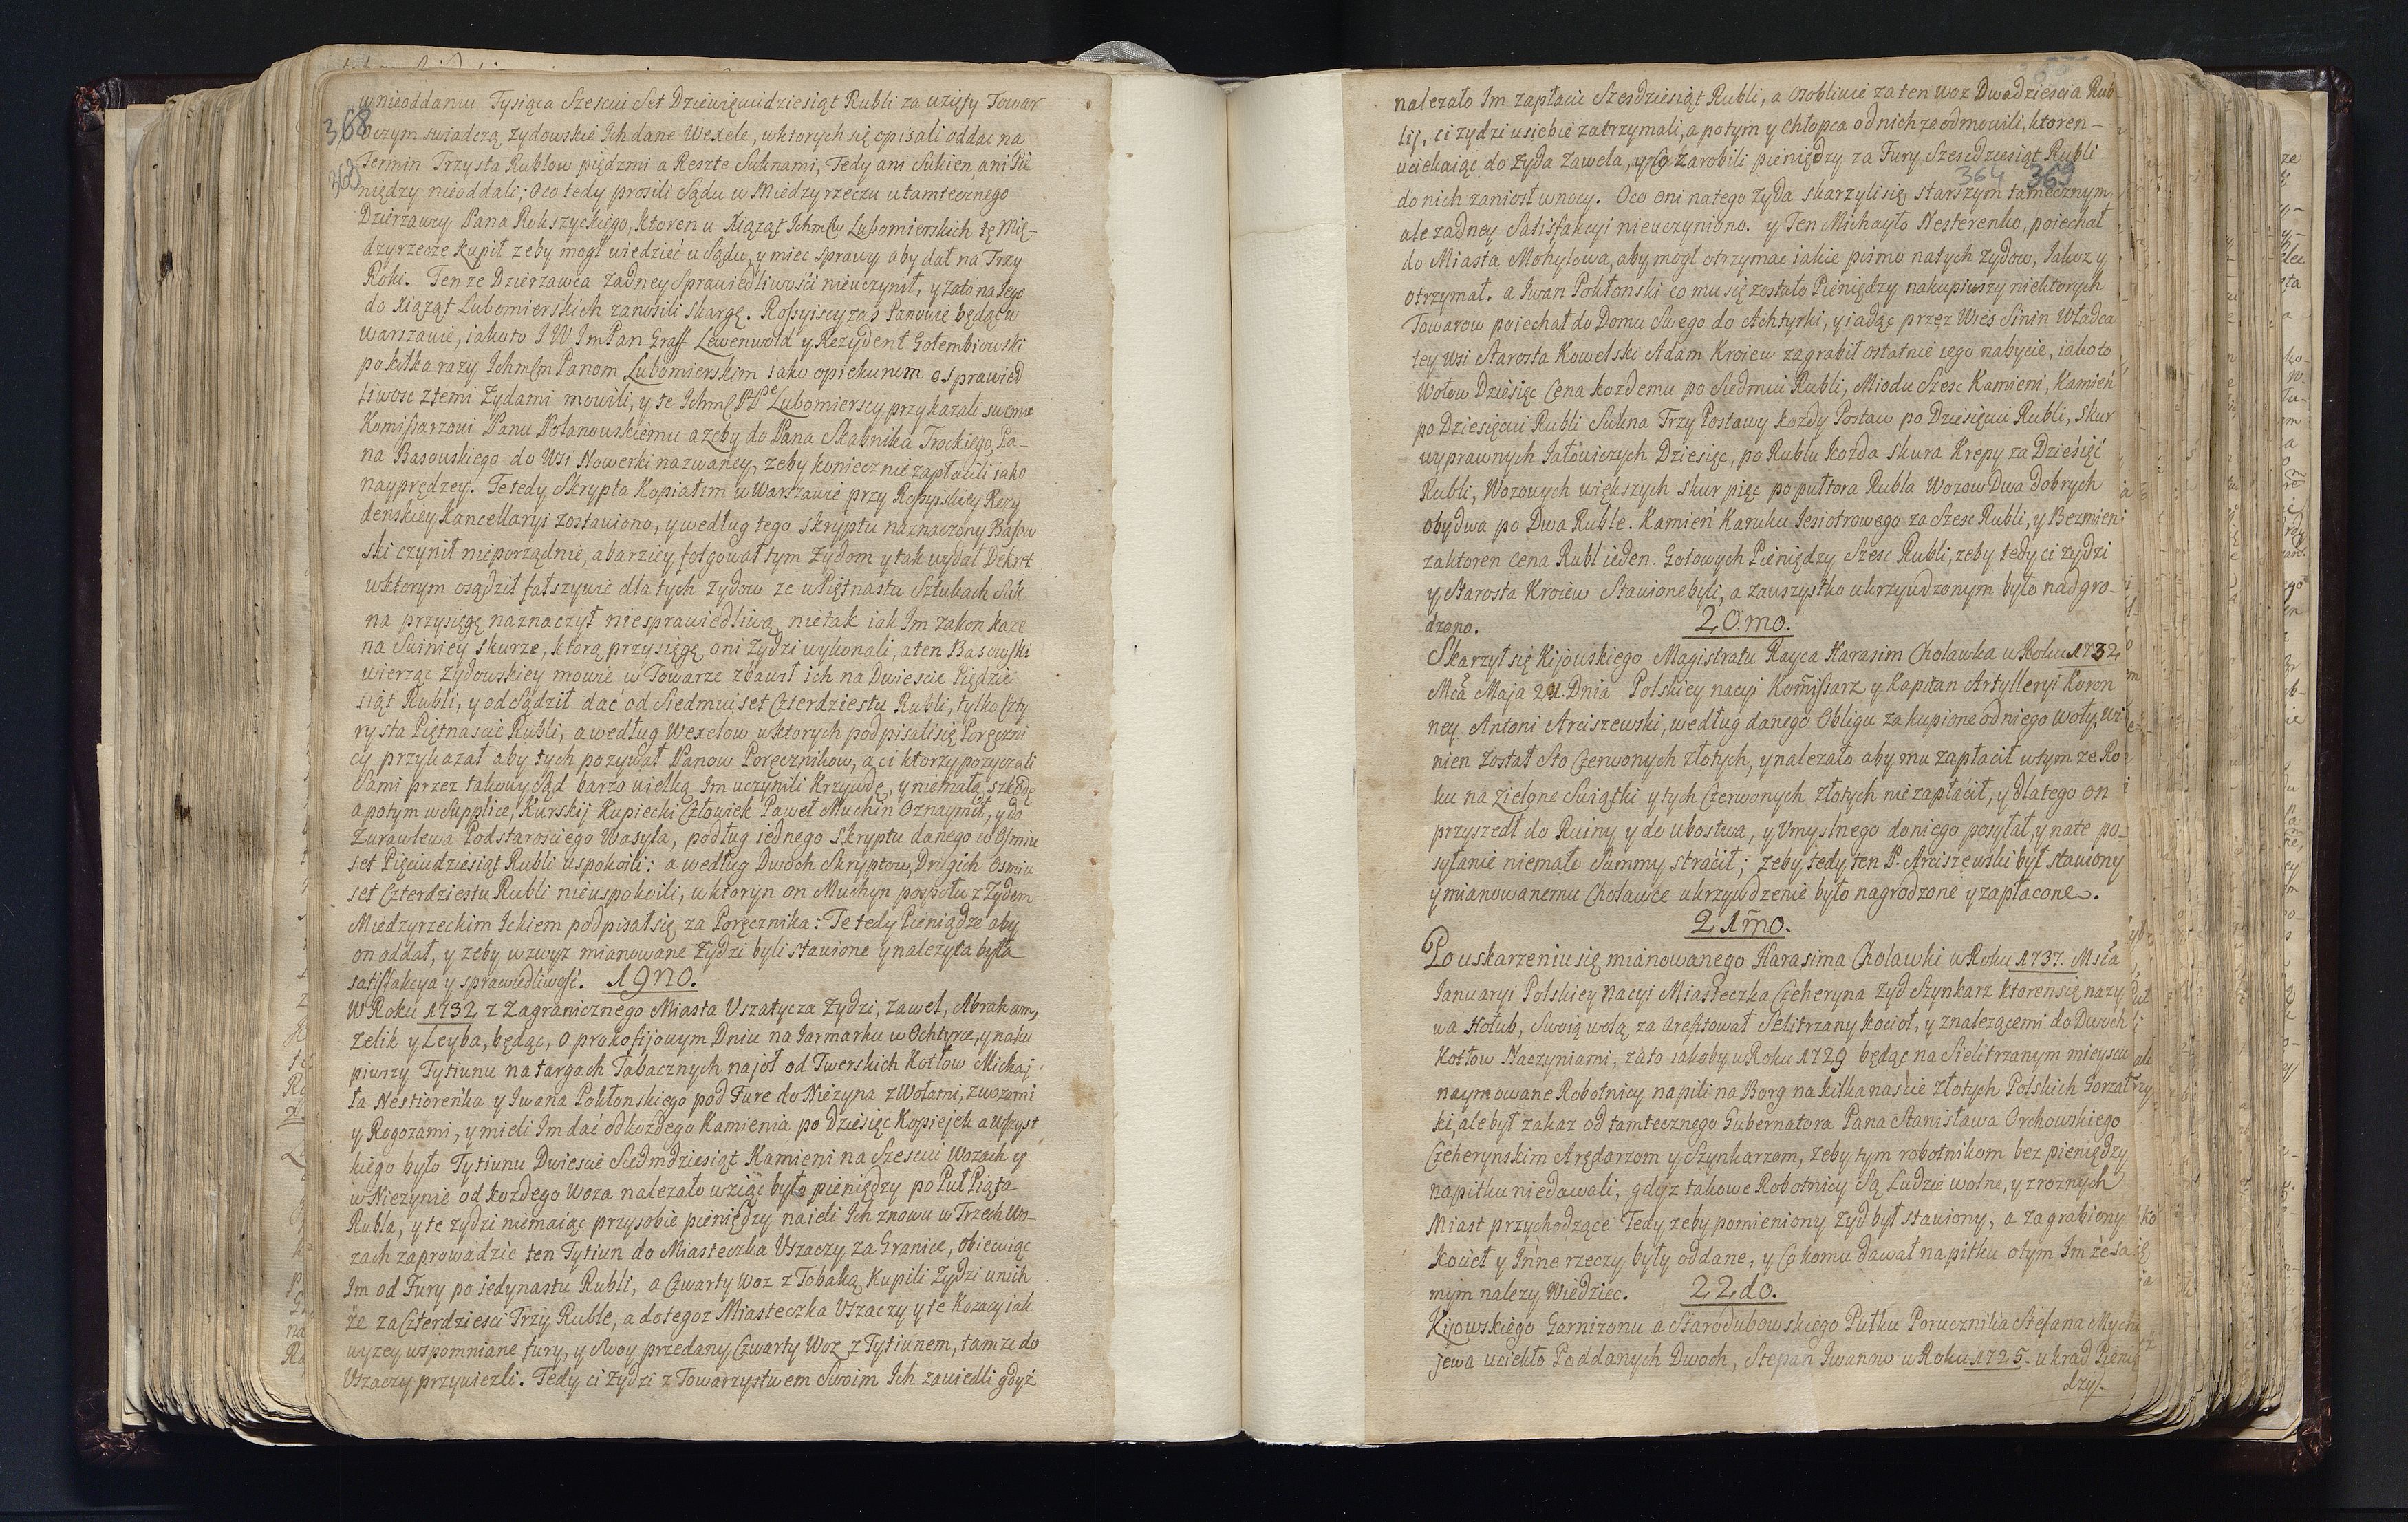 368
363
w nieoddaniu Tysiąca Szesciu Set Dziewięciudziesiąt Rubli za uzięty Towar
oczym swiadczą zydowskie Ich dane Wexele, wktorych się opisali oddac na
Termin Trzysta Rublow piędzmi a Reszte Suknami, Tedy ani Sukien, ani Pie
niędzy nieoddali; Oco tedy prosili Sądu w Miedzyrzeczu u tamtecznego
Dzierzawcy Pana Rokszyckiego, ktoren u Xiąząt Ichm Lubomierskich tę Mię-
dzyrzecze kupił zeby mogł wiedzieć u Sądu, y miec sprawy aby dał na Trzy
Roki. Ten ze Dzierzawca zadney Sprawiedliwości nieuczynił, y zato na Iego
do Xiąząt Lubomierskich zanosili skargę. Rossyiscy zas Panowie będąc w
warszawie, iakoto I W ImPan Graff Lewenwold y Rezydent Gołembiowski
pokilka razy Ichm Panom Lubomierskim iako opiekunom o sprawied
liwosc z temi Zydami mowili, y te Ichm PP Lubomierscy przykazali swemu
Komissarzowi Panu Potanouskiemu azeby do Pana Skabnika Trockiego, Pa-
na Basowskiego do Wsi Nowerki nazwaney, zeby koniecznie zapłacili iako
nayprędzey. Te tedy Skrypta Kopiałim w Warszawie przy Rossyiskiey Rezy
denskiey Kancellaryi zostawiono, y według tego skryptu naznaczony Basow
ski czynił nieporządnie, a barziey folgował tym Zydom y tak wydał Dekret
wktorym osądził fałszywie dla tych zydow ze w Piętnastu Sztukach Suk
na przysięgę naznaczył niesprawiedliwą, nie tak iak Im zakon kaze
na Swiniey skurze, ktorą przysięgę oni Zydzi wykonali, a ten Basowski
wierząc Zydowskiey mowie w Towarze zbawił ich na Dwiescie Piędzie
siąt Rubli, y odsądził dać od Siedmiuset Czterdziestu Rubli, tylko Czty
rysta Piętnascie Rubli, a według Wexelow wktorych podpisali się Poręczni
cy przykazał aby tych pozywał Panow Poręcznikow, a ci ktorzy pozyczali
Sami przez takowy sąd barzo wielką Im uczynili Krzywdę, y niemałą szkodę
a potym w Supplice, Kurskij Kupiecki Człowiek Paweł Muchin Oznaymił, y do
Zurawlewa Podstarosciego Wasyla, podług iednego skryptu danego w Osmiu
set Pięciudziesiąt Rubli uspokoili: a według Dwoch Skryptow, Drugich Osmiu
set Czterdziestu Rubli nieuspokoili, w ktoryn on Muchyn pospołu z Zydem
Miedzyrzeckim Ickiem podpisał się za Poręcznika: Te tedy Pieniądze aby
on oddał, y zeby wzwyz mianowane Zydzi byli stawione y nalezyta była
satisfakcya y sprawiedliwość. 19no.
W Roku 1732 z Zagranicznego Miasta Uszatycza Zydzi, Zawel, Abraham,
Zelik y Leyba, będąc, o prokofijowym Dniu na Iarmarku w Ochtyrce, y naku
piwszy Tytiunu na targach Tabacznych najoł od Twerskich Kotłow Michaj
ła Nestiorenka y Iwana Pokłonskiego pod Fure do Niezyna z Wołami, zwozami
y Rogozami, y mieli Im dać odkozdego Kamienia po Dziesięc Kopiejek a Wszyst
kiego było Tytiunu Dwiescie Siedmdziesiąt Kamieni na Szesciu Wozach y
w Niezynie od kozdego Woza nalezało wziąc było pieniędzy po Puł Piąta
Rubla, y te zydzi niemaiąc przysobie pieniędzy naieli Ich znowu w Trzech Wo-
zach zaprowadzic ten Tytiun do Miasteczka Uszaczy za Granice, obiecuiąc
Im od Fury po iedynastu Rubli, a Czwarty Woz z Tobaką Kupili Zydzi unich
że za Czterdziesci Trzy Ruble, a dotegoz Miasteczka Uszaczy y te Kozacy iak
wyzey wspomniane fury, y Swoy przedany Czwarty Woz z Tytiunem, tamze do
Uszaczy przywiezli. Tedy ci Zydzi z Towarzystwem Swoim Ich zawiedli gdyż
364 369
nalezało Im zapłacic Szesdziesiąt Rubli, a osobliwie za ten woz Dwadziescia Rub
lij, ci zydzi usiebie zatrzymali, a potym y chłopca od nich ze odmowili, ktoren-
uciekaiąc do zyda Zawela, y co zarobili pieniędzy za Fury Szescdziesiąt Rubli
do nich zaniosł wnocy. Oco oni natego zyda skarzylisię starszym tamecznym,
ale zadney Satisfakcyi nieuczyniono. y Ten Michayło Nesterenko, poiechał
do Miasta Mohylowa, aby mogł otrzymac iakie pismo natych zydow, Iakoz y
otrzymał. a Iwan Pokłonski co mu się zostało Pieniędzy nakupiwszy niektorych
Towarow poiechał do Domu Swego do Achtyrki, y iadąc przez Wieś Sinin Władca
tey wsi Starosta Kowelski Adam Kroiew zagrabił ostatnie iego nabycie, iakoto
Wołow Dziesięc Cena kozdemu po Siedmiu Rubli, Miodu Szesc Kamieni, Kamień
po Dziesięciu Rubli Sukna Trzy Postawy kozdy Postaw po Dziesięciu Rubli, Skur
wyprawnych Iałowiczych Dziesięc, po Rublu kozda skura Krepy za Dziesięć
Rubli, Wozowych większych skur pięc po pułtora Rubla Wozow Dwa dobrych
obydwa po Dwa Ruble. Kamień Karuku Iesiotrowego za Szesc Rubli, y Bezmien
zaktoren cena Rubl ieden. Gotowych Pieniędzy Szesc Rubli, zeby tedy ci zydzi
y Starosta Kroiew Stawione byli, a zawszystko ukrzywdzonym było nadgro-
dzono. 20.mo.
Skarzył się Kijowskiego Magistratu Rayca Harasim Cholawka w Roku 1732
Mca Maja 21. Dnia Polskiey nacyi Komissarz y Kapitan Artylleryi Koron
ney Antoni Arciszewski, według danego Obligu za kupione od niego woły, wi
nien został Sto Czerwonych złotych, y nalezało aby mu zapłacił wtym ze Ro
ku na Zielone Swiątki y tych Czerwonych złotych niezapłácił, y dlatego on
przyszedł do Ruiny y do ubostwa, y Umyslnego doniego posyłał, y nate po-
syłanie niemało Summy stracił; zeby tedy ten P. Arciszewski był stawiony
y mianowanemu Cholawce ukrzywdzenie było nagrodzone y zapłacone.
21mo.
Po uskarzeniu się mianowanego Harasima Cholawki w Roku 1737. Msca
Januaryi Polskiey Nacyi Miasteczka Czeheryna zyd Szynkarz ktoren się nazy
wa Hołub, Swoią wolą za arestował Selitrzany kocioł, y znalezącemi do Dwoch
Kotłow Naczyniami, zato iakoby w Roku 1729 będąc na Sielitrzanym mieyscu
naymowane Robotnicy napili na Borg na kilkanascie złotych Polskich Gorzał
ki, ale był zakaz od tamtecznego Gubernatora Pana Stanisława Orchowskiego
Czeherynskim Arędarzom y Szynkarzom, zeby tym robotnikom bez pieniędzy
napitku niedawali, gdyz takowe Robotnicy Są Ludzie wolne, y zroznych
Miast przychodzące Tedy zeby pomieniony zyd był stawiony, a zagrabiony
kocieł y Inne rzeczy były oddane, y Co komu dawał napitku otym Im ze sa
mym nalezy Wiedziec. 22do.
Kijowskiego Garnizonu a Starodubowskiego Pułku Porucznika Stefana Mych
jewa uciekło Poddanych Dwoch, Stepan Iwanow w Roku 1725. ukrad Pienię
dzy.